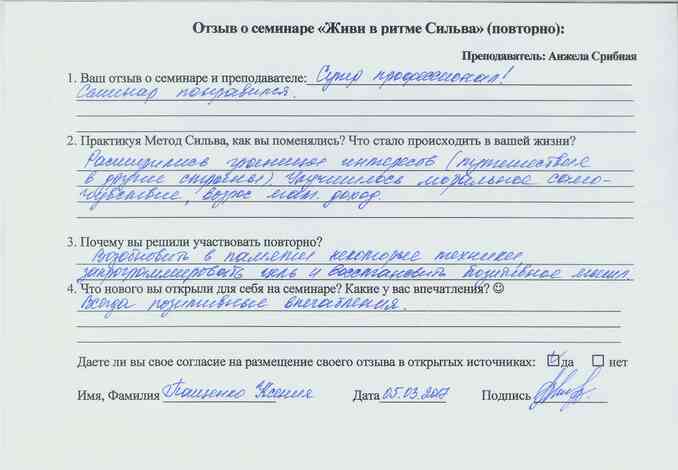 Отзыв о семинаре «Живи в ритме Сильва» (повторно):
Преподаватель: Анжела Срибная
1. Ваш отзыв о семинаре и преподавателе: Супер профессионал!
Семинар понравился.
2. Практикуя Метод Сильва, как вы поменялись? Что стало происходить в вашей жизни?
Расширились границы интересов (путешествия
в другие страны) Улучшилось моральное само-
чувствие, возрос мат. доход.
3. Почему вы решили участвовать повторно?
Возобновить в памяти некоторые техники
запрограммировать цель и восстановить позитивное мышл.
4. Что нового вы открыли для себя на семинаре? Какие у вас впечатления? ☺
Всегда позитивные впечатления.
Даете ли вы свое согласие на размещение своего отзыва в открытых источниках: ☑ да ☐ нет
Имя, Фамилия Пащенко Ксения Дата 05.03.2017 Подпись